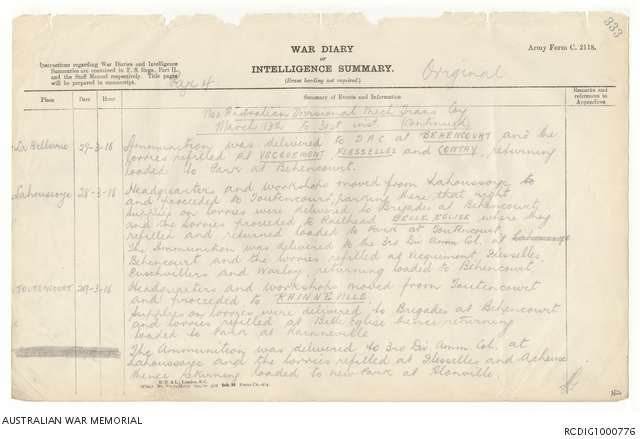 333
WAR DIARY
or
INTELLIGENCE SUMMARY.
(Erase heading not required.)
Army Form C. 2118.
Instructions regarding War Diaries and Intelligence
Summaries are contained in F. S. Regs., Part II.,
and the Staff Manual respectively. Title pages
will be prepared in manuscript.
Page 4
Original
Place
Date
Hour
Summary of Events and Information
Remarks and
references to
Appendices
Australian Divisional Mech Trans Coy
March 17th to 31st inst. (Continued)
27-3-18 Ammunition was delivered to D.A.C. at BEHENCOURT and the
lorries refilled at VECQUEMONT, FLESSELLES and CONTAY, returning
loaded to Park at Behencourt.
Lahoussoye 28-3-18 Headquarters and workshops moved from Lahoussoye to
and proceeded to Toutencourt, parking here that night
Supplies on lorries were delivered to Brigades at Behencourt,
and the lorries proceeded to Railhead BELLE EGLISE where they
refilled and returned loaded to Park at Toutencourt.
The Ammunition was delivered to the 3rd Div Amm Col. at Lahoussoye
Behencourt and the lorries refilled at Vecquemont, Flesselles,
Puschvillers and Warloy, returning loaded to Behencourt.
TOUTENCOURT 29-3-18 Headquarters and Workshops moved from Toutencourt
and proceeded to RAINNEVILLE
Supplies on lorries were delivered to Brigades at Behencourt
and lorries refilled at Belle Eglise hence returning
loaded to Park at Rainneville
The Ammunition was delivered to 3rd Div Amm. Col. at
Lahoussoye and the lorries refilled at Flesselles and Acheux
thence returning loaded to new Park at
AUSTRALIAN WAR MEMORIAL
RCDIG1000776